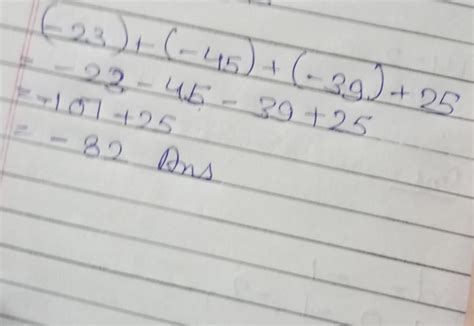 (-23) + (-45) + (-39) + 25
= -23 - 45 - 39 + 25
= -107 + 25
= -82 Ans